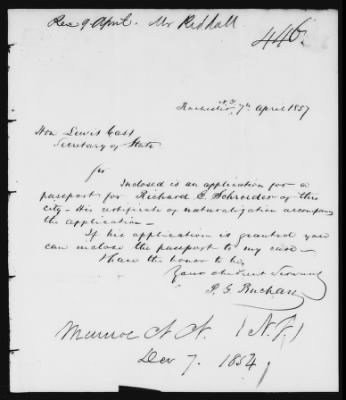 Rec 9 April. Mr Riddall
446.
Rochester N.Y. 7th April 1857
Hon Lewis Cass
Secretary of State
Sir
Inclosed is an application for a
passport for Richard E. Schroeder of this
city - His certificate of naturalization accompany
the application -
If his application is granted you
can inclose the passport to my care -
I have the honor to be,
Your obedient Servant
P. G. Buchan
Munroe N. Y. (N. F.)
Dec 7. 1854